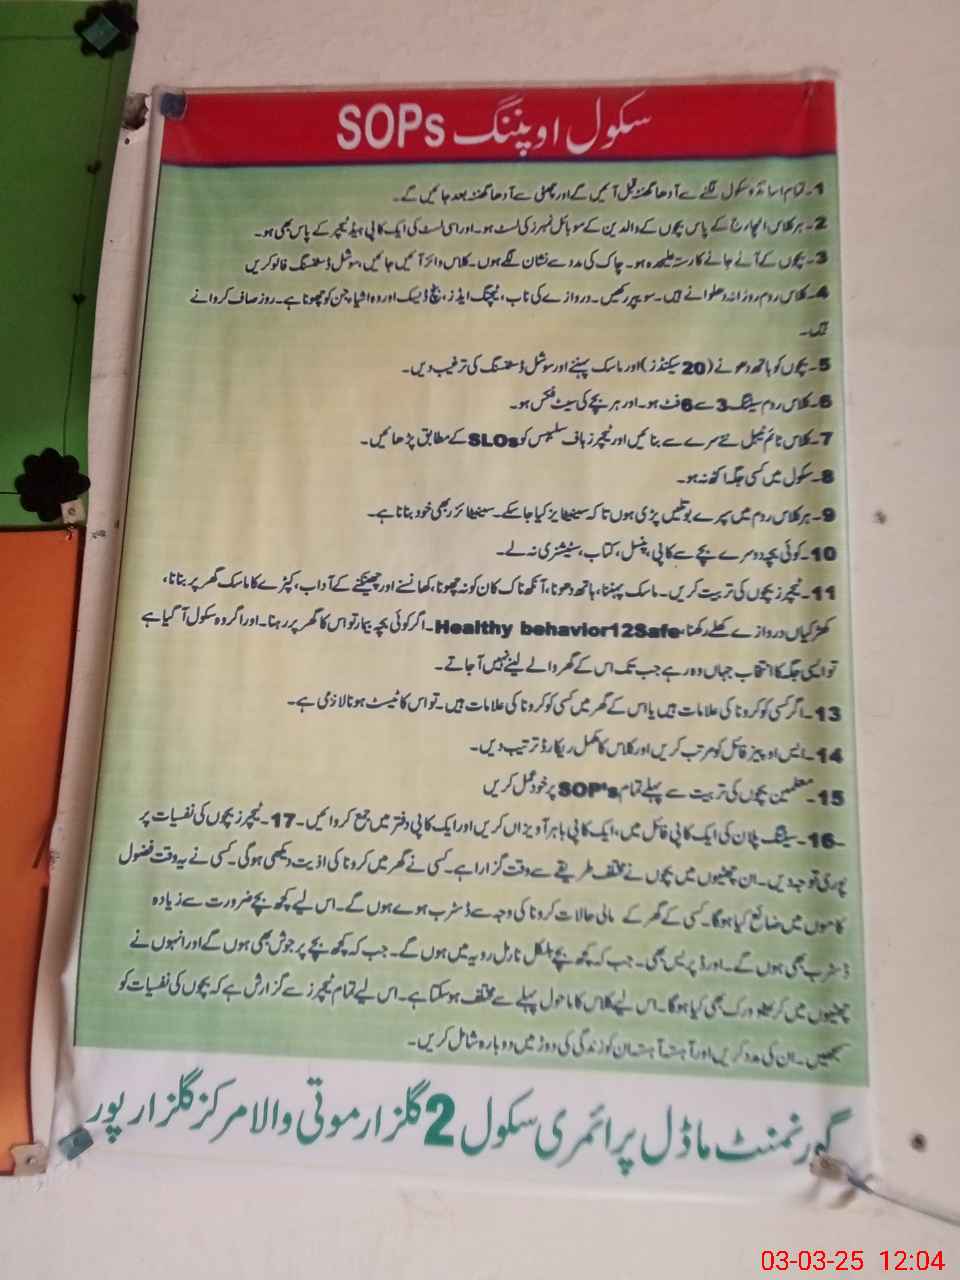 سکول اوپننگ SOPs
1۔ تمام اساتذہ سکول لگنے سے آدھا گھنٹہ قبل آئیں گے اور چھٹی سے آدھا گھنٹہ بعد جائیں گے۔
2۔ ہر کلاس انچارج کے پاس بچوں کے والدین کے موبائل نمبرز کی لسٹ ہو۔ اور اسی لسٹ کی ایک کاپی ہیڈ ٹیچر کے پاس بھی ہو۔
3۔ بچوں کے آنے جانے کا رستہ علیحدہ ہو۔ چاک کی مدد سے نشان لگے ہوں۔ کلاس وائز آئیں جائیں، سوشل ڈسٹنسنگ فالو کریں
4۔ کلاس روم روزانہ دھلوانے ہیں۔ سویپر رکھیں۔ دروازے کی ناب، ٹیچنگ ایڈز، بنچ ڈیسک اور وہ اشیا جن کو چھونا ہے۔ روز صاف کروانے
ہیں۔
5۔ بچوں کو ہاتھ دھونے (20 سیکنڈز) اور ماسک پہننے اور سوشل ڈسٹنسنگ کی ترغیب دیں۔
6۔ کلاس روم سیٹنگ 3 سے 6 فٹ ہو۔ اور ہر بچے کی سیٹ فکس ہو۔
7۔ کلاس ٹائم ٹیبل نئے سرے سے بنائیں اور ٹیچرز ہاف سلیبس کو SLOs کے مطابق پڑھائیں۔
8۔ سکول میں کسی جگہ اکٹھ نہ ہو۔
9۔ ہر کلاس روم میں سپرے بوتلیں پڑی ہوں تاکہ سینیٹایز کیا جا سکے۔ سینیٹائزر بھی خود بنانا ہے۔
10۔ کوئی بچہ دوسرے بچے سے کاپی، پنسل، کتاب، سٹیشنری نہ لے۔
11۔ ٹیچرز بچوں کی تربیت کریں۔ ماسک پہننا، ہاتھ دھونا، آنکھ ناک کان کو نہ چھونا، کھانسنے اور چھینکنے کے آداب، کپڑے کا ماسک گھر پر بنانا،
کھڑکیاں دروازے کھلے رکھنا، Healthy behavior12Safe۔ اگر کوئی بچہ بیمار تو اس کا گھر پر رہنا۔ اور اگر وہ سکول آ گیا ہے
تو ایسی جگہ کا انتخاب جہاں وہ رہے جب تک اس کے گھر والے لینے نہیں آ جاتے۔
13۔ اگر کسی کو کرونا کی علامات ہیں یا اس کے گھر میں کسی کو کرونا کی علامات ہیں۔ تو اس کا ٹیسٹ ہونا لازمی ہے۔
14۔ ایس او پیز فائل کو مرتب کریں اور کلاس کا مکمل ریکارڈ ترتیب دیں۔
15۔ معلمین بچوں کی تربیت سے پہلے تمام SOP's پر خود عمل کریں
16۔ سیٹنگ پلان کی ایک کاپی فائل میں، ایک کاپی باہر آویزاں کریں اور ایک کاپی دفتر میں جمع کروائیں۔ 17۔ ٹیچرز بچوں کی نفسیات پر
پوری توجہ دیں۔ ان چھٹیوں میں بچوں نے مختلف طریقے سے وقت گزارا ہے۔ کسی نے گھر میں کرونا کی اذیت دیکھی ہوگی۔ کسی نے یہ وقت فضول
کاموں میں ضائع کیا ہوگا۔ کسی کے گھر کے مالی حالات کرونا کی وجہ سے ڈسٹرب ہوے ہوں گے۔ اس لیے کچھ بچے ضرورت سے زیادہ
ڈسٹرب بھی ہوں گے۔ اور ڈپریس بھی۔ جب کہ کچھ بچے بالکل نارمل رویہ میں ہوں گے۔ جب کہ کچھ بچے پر جوش بھی ہوں گے اور انہوں نے
چھٹیوں میں کریٹو ورک بھی کیا ہوگا۔ اس لیے کلاس کا ماحول پہلے سے مختلف ہو سکتا ہے۔ اس لیے تمام ٹیچرز سے گزارش ہے کہ بچوں کی نفسیات کو
سمجھیں۔ ان کی مدد کریں اور آہستہ آہستہ ان کو زندگی کی دوڑ میں دوبارہ شامل کریں۔
گورنمنٹ ماڈل پرائمری سکول 2 گلزار موتی والا مرکز گلزار پور
03-03-25 12:04